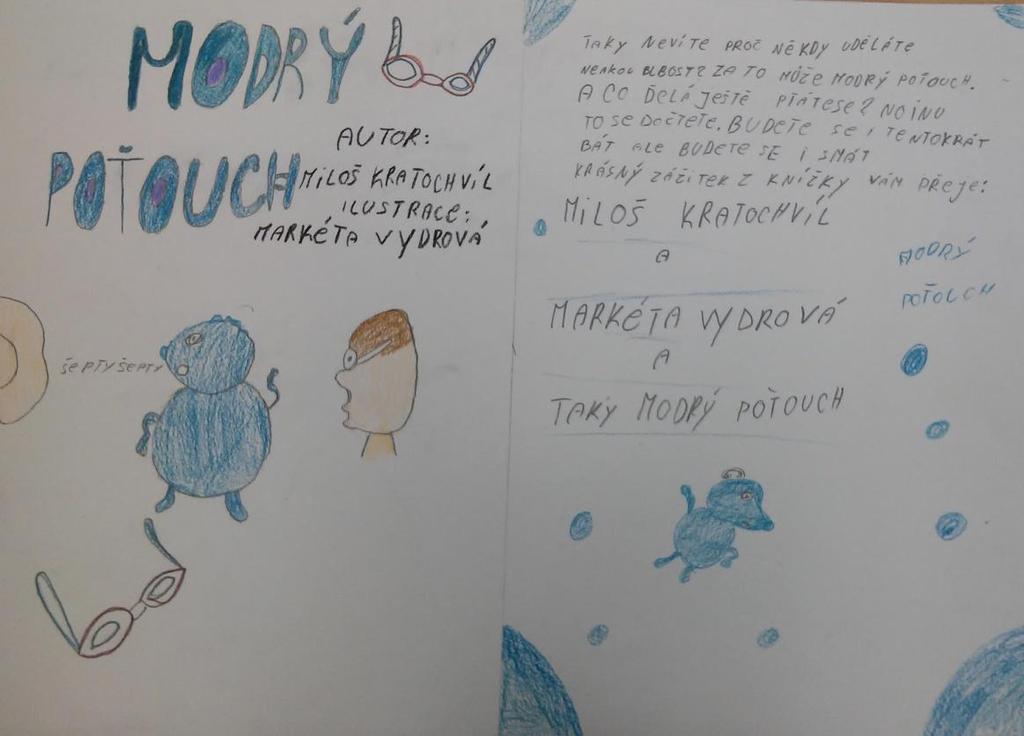 MODRÝ
POŤOUCH
AUTOR:
MILOŠ KRATOCHVÍL
ILUSTRACE:
MARKÉTA VYDROVÁ
ŠEPTY ŠEPTY
TAKY NEVÍTE PROČ NĚKDY UDĚLÁTE
NĚAKOU BLBOST? ZA TO MŮŽE MODRÝ POŤOUCH.
A CO DĚLÁ JEŠTĚ PTÁTE SE? NO INU
TO SE DOČTETE. BUDETE SE I TENTOKRÁT
BÁT ALE BUDETE SE I SMÁT
KRÁSNÝ ZÁŽITEK Z KNÍŽKY VÁM PŘEJE:
MILOŠ KRATOCHVÍL
A
MARKÉTA VYDROVÁ
A
TAKY MODRÝ POŤOUCH
MODRÝ
POŤOUCH